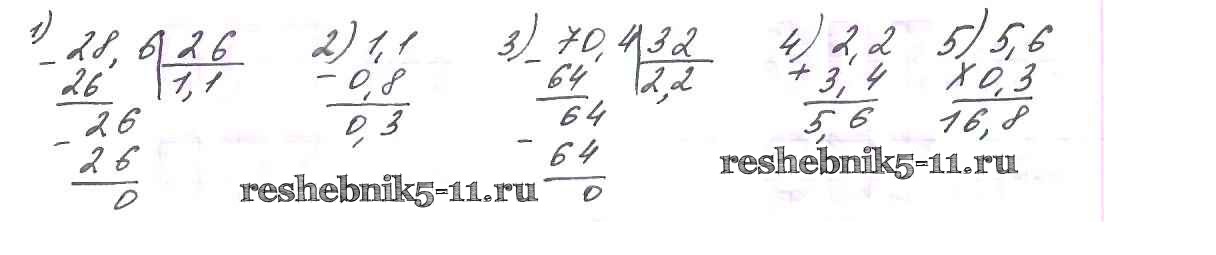 1) - 28,6 | 26
26 | 1,1
- 26
26
0
2) 1,1
- 0,8
0,3
3) - 70,4 | 32
64 | 2,2
- 64
64
0
4) 2,2
+ 3,4
5,6
5) 5,6
× 0,3
16,8
reshebnik5-11.ru
reshebnik5-11.ru